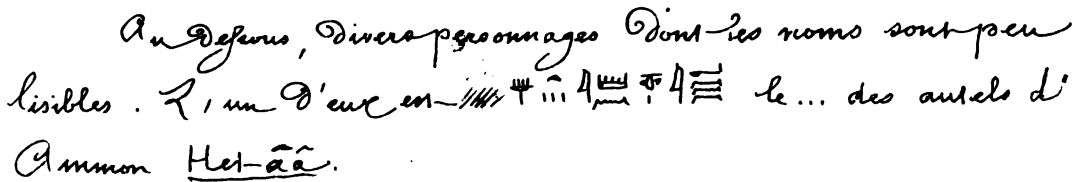 Au dessous, divers personnages dont les noms sont peu
lisibles. L'un d'eux est le... des autels d'
Ammon Het-āā.